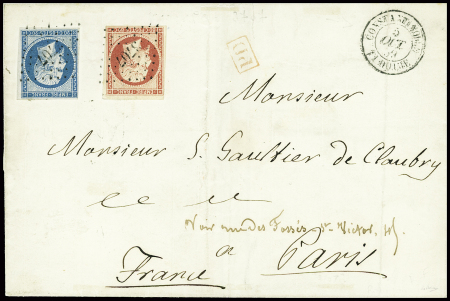 PD
CONSTANTINOPLE
5
OCT
Monsieur
Monsieur S. Gaultier de Claubry
Voir rue des Fossés St Victor 45
a Paris
France